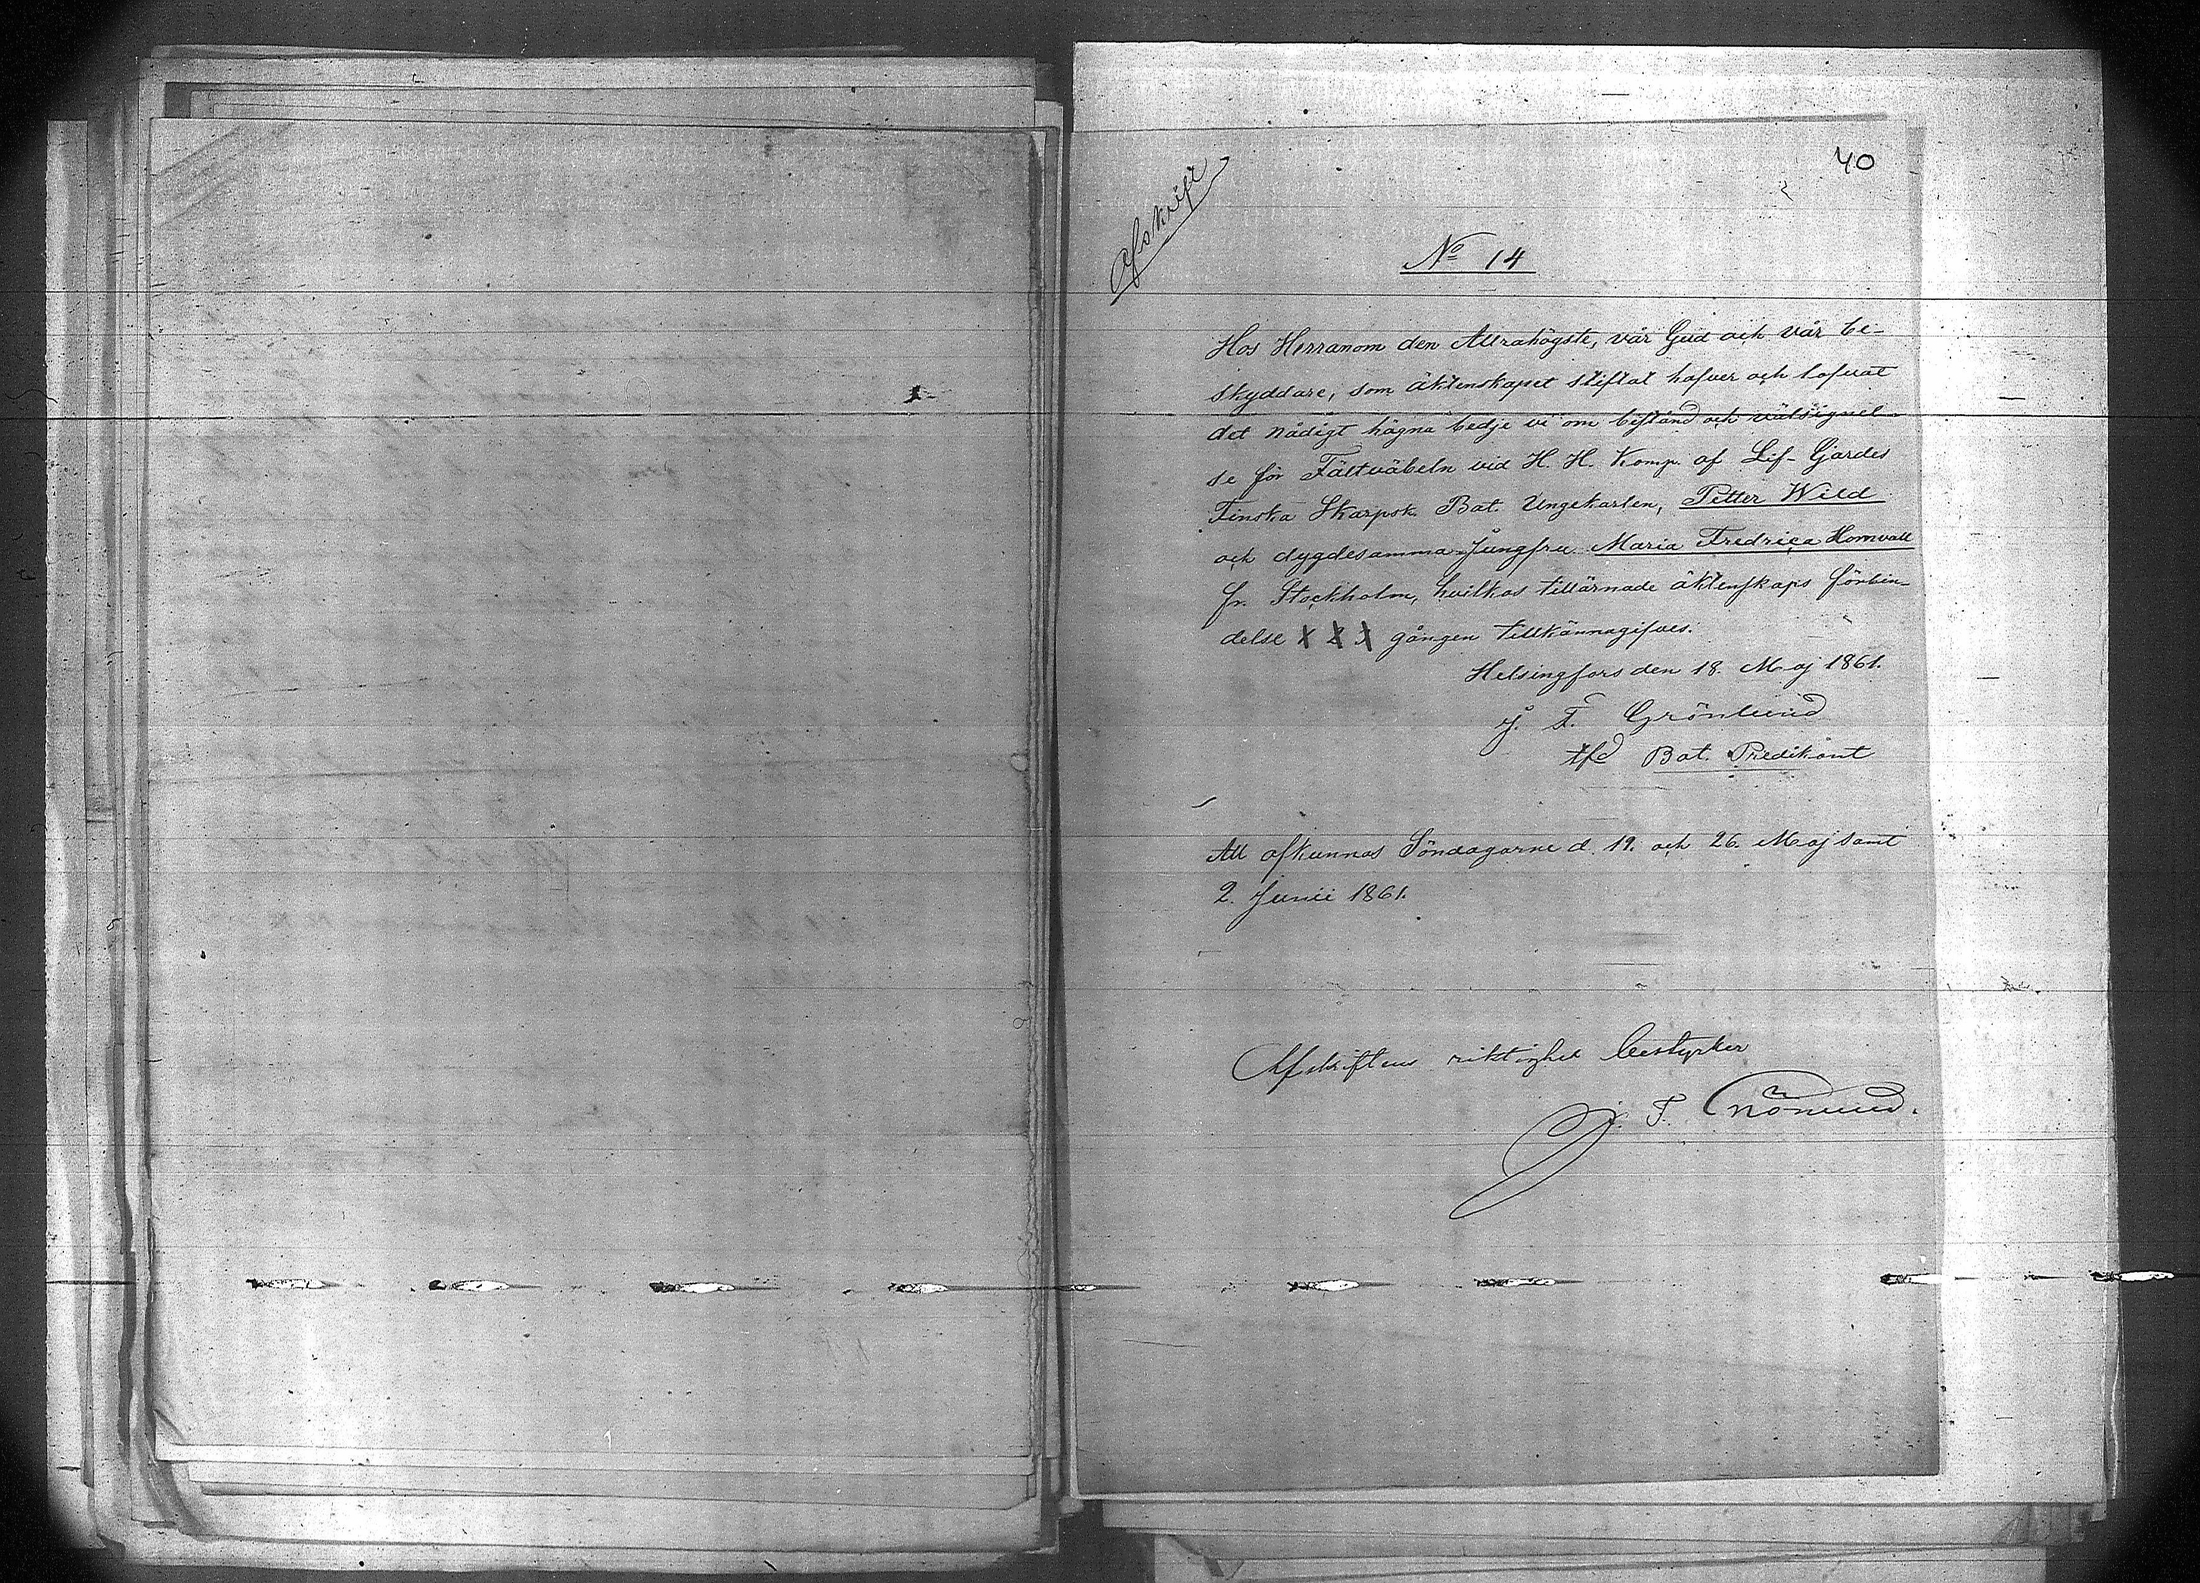 40
Afskrift
No 14
Hos Herranom den Allrahögste, vår Gud och vår be-
skyddare, som äktenskapet stiftat hafver och lofvat
det nådigt hägna bedje vi om bistånd och välsignel-
se för Fältväbeln vid H. H. Komp. af Lif-Gardes
Finska Skarpsk. Bat. Ungekarlen, Petter Wild
och dygdesamma Jungfru Maria Fredrica Homvall
fr. Stockholm, hvilkas tillärnade äktenskaps förbin-
delse 1 2 3 gången tillkännagifves.
Helsingfors den 18. Maj 1861.
J. F. Grönlund
tfd Bat. Predikant
Att afkunnas Söndagarne d. 19. och 26. Maj samt
2. Junii 1861.
Afskriftens riktighet bestyrker
J. F. Grönlund.